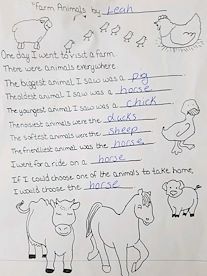 "Farm Animals by Leah
One day I went to visit a farm
There were animals everywhere
The biggest animal I saw was a pg
The oldest animal I saw was a horse
The youngest animal I saw was a chick
The noisiest animals were the ducks
The softest animals were the sheep
The friendliest animal was the horse
I went for a ride on a horse
If I could choose one of the animals to take home,
I would choose the horse